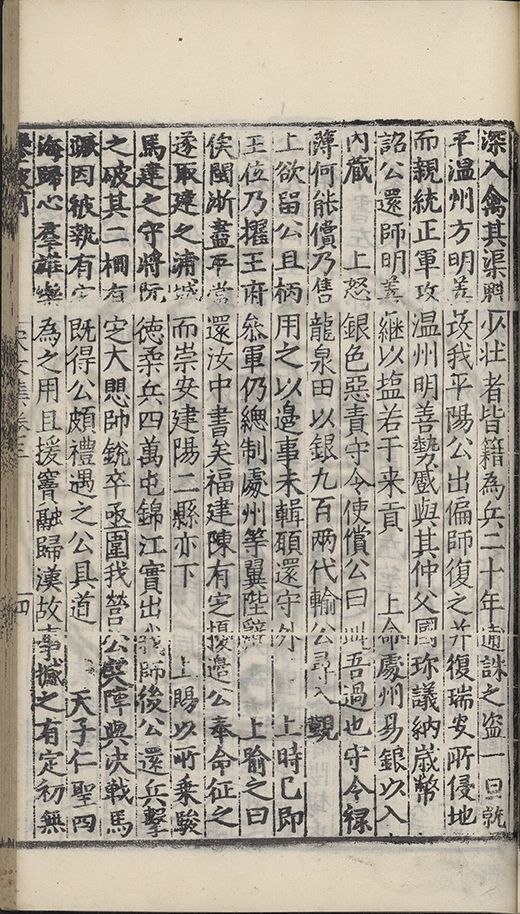 深入禽其渠魁少壯者皆籍為兵二十年逋誅之盜一旦就
平溫州方明善攻我平陽公出偏師復之并復瑞安所侵地
而親統正軍攻溫州明善勢蹙與其仲父國珍議納歲幣
詔公還師明善繼以塩若干来貢　上命處州易銀以入
內藏　上怒銀色惡責守令使償公曰此吾過也守令祿
薄何能償乃售龍泉田以銀九百两代輸公尋入覲
上欲留公且柄用之以邊事未輯頋還守外　上時已即
王位乃擢王府叅軍仍緫制處州等翼陛辭　上喻之曰
俟閩浙盡平當還汝中書矣福建陳有定擾邊公奉命征之
遂取建之浦城而崇安建陽二縣亦下　上賜以所乘駿
馬建之守將阮徳柔兵四萬屯錦江實出我師後公還兵擊
之破其二柵有定大恐帥銳卒亟圍我營公突陣與决戰馬
蹶因被執有定既得公頗禮遇之公具道　天子仁聖四
海歸心羣雄樂為之用且援竇融歸漢故事撼之有定初無